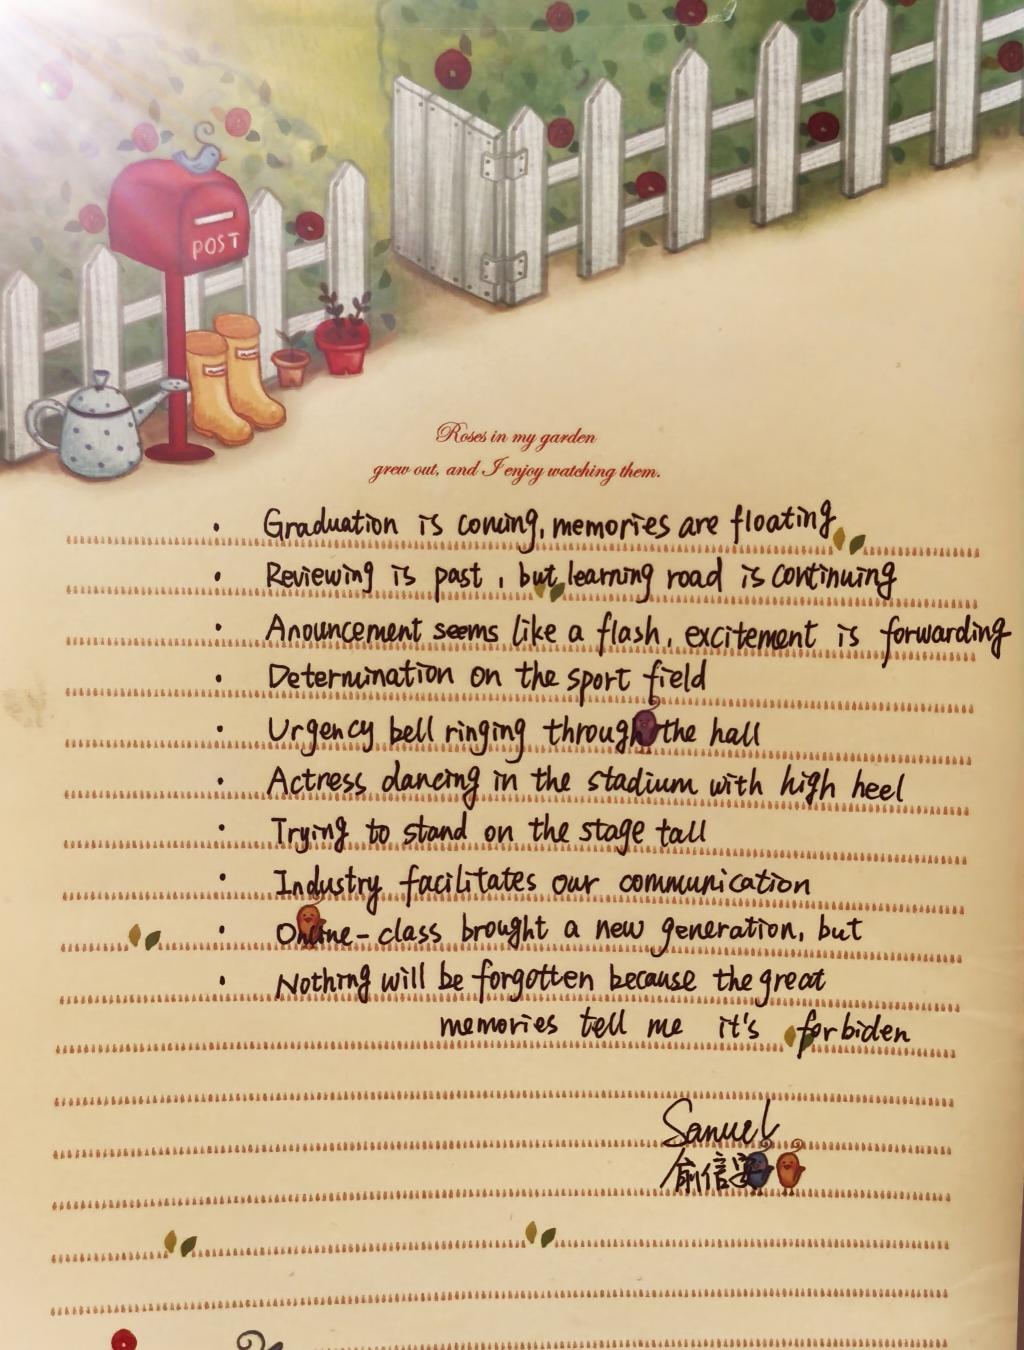 POST
Roses in my garden
grew out, and I enjoy watching them.
· Graduation is coming, memories are floating
· Reviewing is past, but learning road is continuing
· Anouncement seems like a flash, excitement is forwarding
· Determination on the sport field
· Urgency bell ringing through the hall
· Actress dancing in the stadium with high heel
· Trying to stand on the stage tall
· Industry facilitates our communication
· Online-class brought a new generation, but
· Nothing will be forgotten because the great
memories tell me it's forbiden
Samuel
俞信